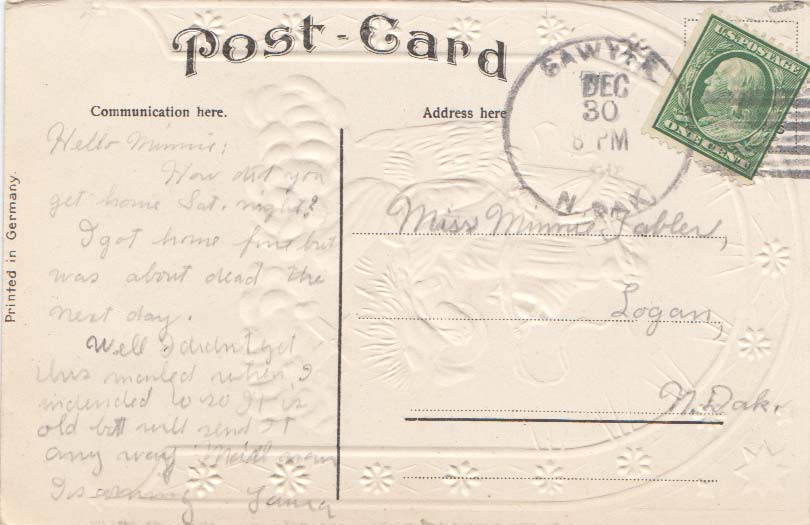 Post-Card
Communication here.
Address here
SAWYER
DEC
30
8 PM
N. DAK.
U.S. POSTAGE
ONE CENT
Printed in Germany.
Hello Minnie:
How did you
get home Sat. night?
I got home fine but
was about dead the
next day.
Well I didn't get
this mailed when I
intended to so It is
old but will send it
any way
Laura
Miss Minnie Fabler,
Logan,
N. Dak.